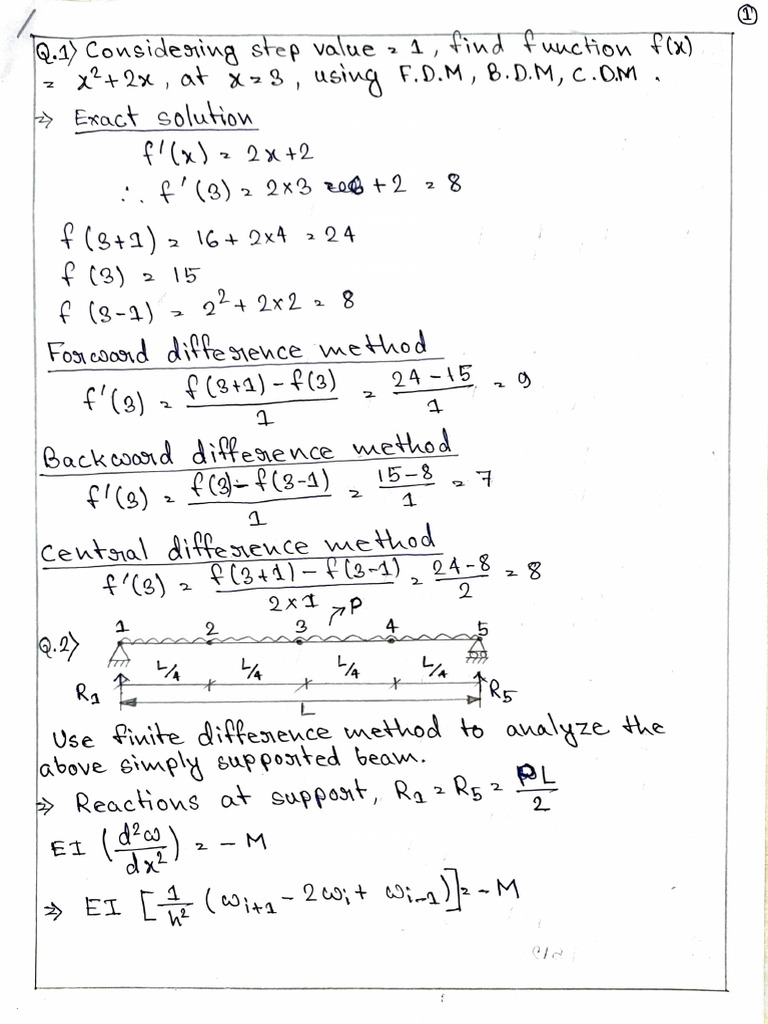 ①
Q.1) Considering step value = 1, find function f(x)
= x²+2x, at x=3, using F.D.M, B.D.M, C.D.M.
⇒ Exact solution
f'(x) = 2x+2
∴ f'(3) = 2×3 + 2 = 8
f(3+1) = 16 + 2×4 = 24
f(3) = 15
f(3-1) = 2² + 2×2 = 8
Forward difference method
f'(3) = (f(3+1) - f(3))/1 = (24-15)/1 = 9
Backward difference method
f'(3) = (f(3) - f(3-1))/1 = (15-8)/1 = 7
Central difference method
f'(3) = (f(3+1) - f(3-1))/(2×1) = (24-8)/2 = 8
Q.2) 1 2 3 4 5 P
L/4 L/4 L/4 L/4
R₁ L R₅
Use finite difference method to analyze the
above simply supported beam.
⇒ Reactions at support, R₁ = R₅ = PL/2
EI (d²ω/dx²) = - M
⇒ EI [1/h² (ωᵢ₊₁ - 2ωᵢ + ωᵢ₋₁)] = - M